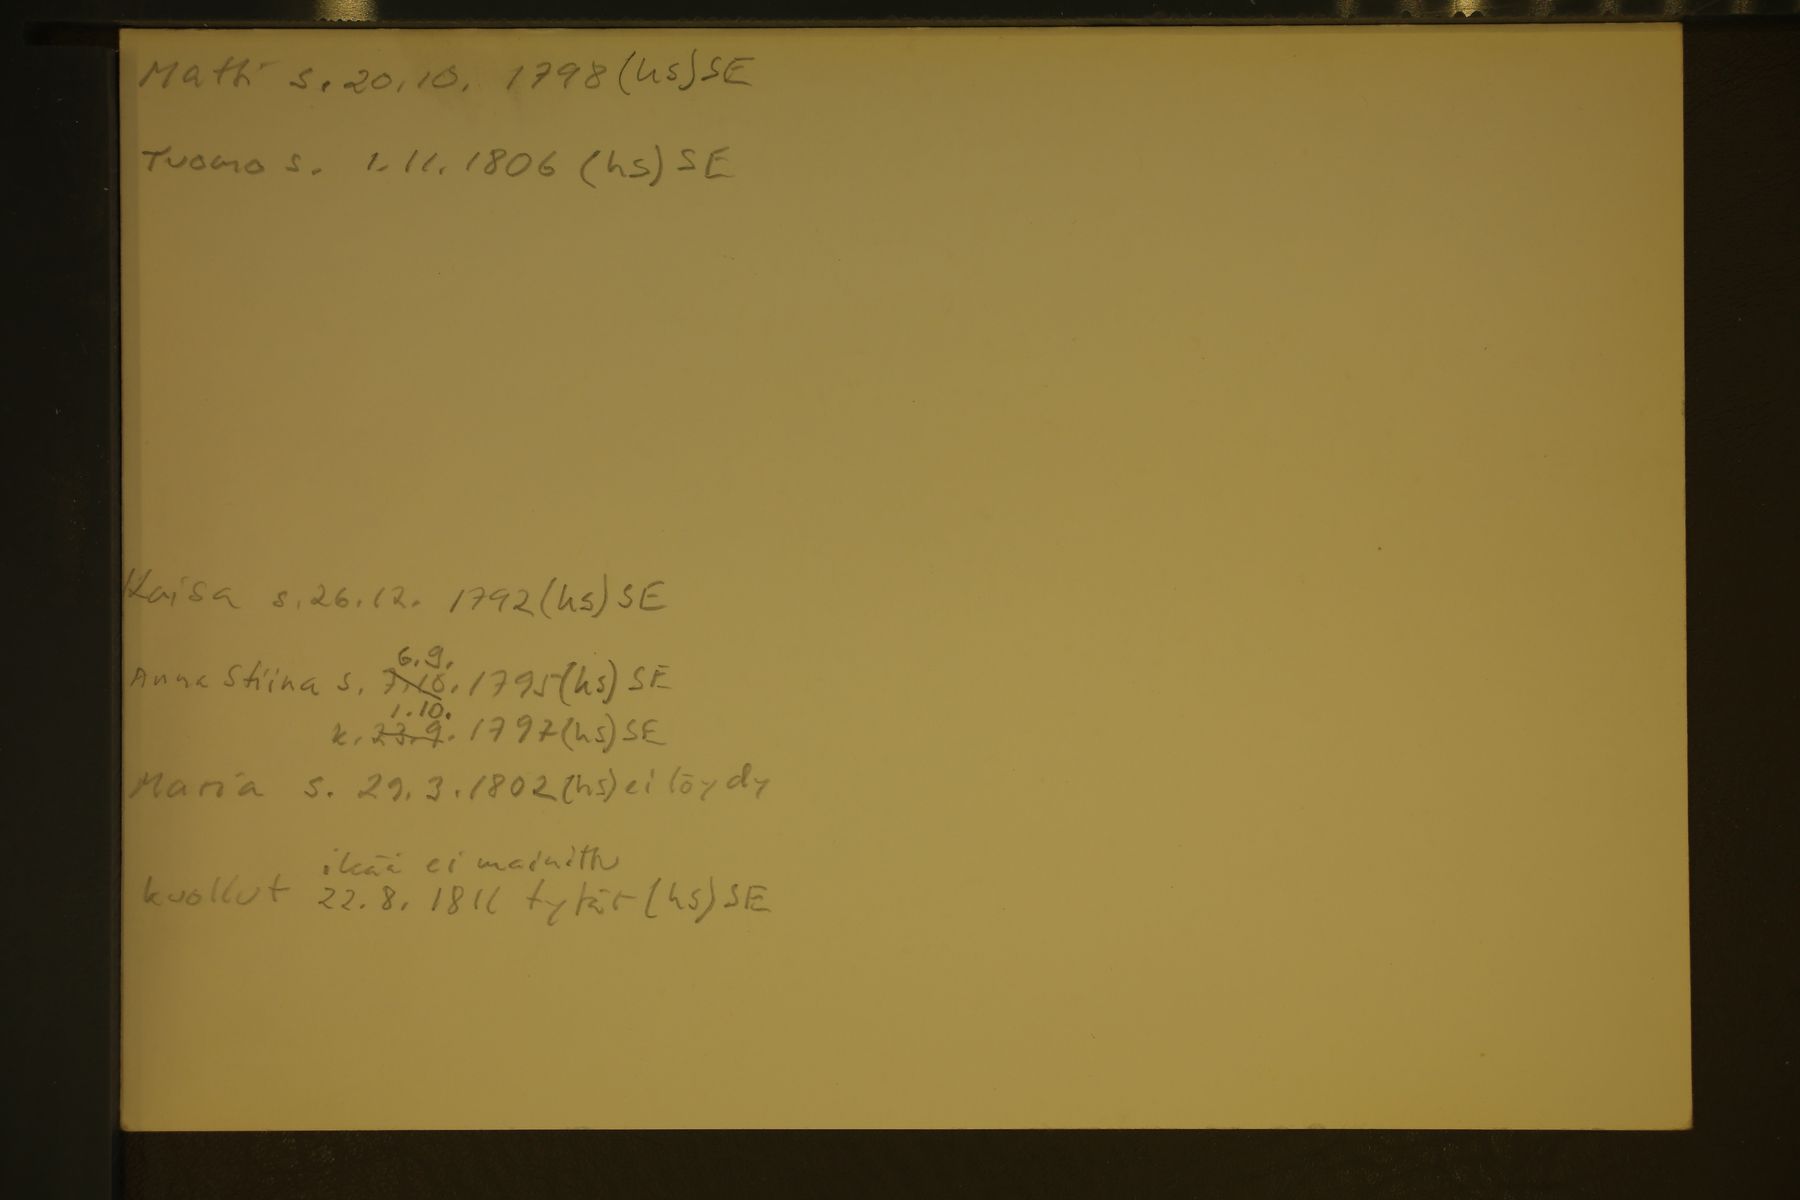 Matti s. 20.10. 1798 (hs) SE
Tuomo s. 1.11. 1806 (hs) SE
Kaisa s. 26.12. 1792 (hs) SE
6.9.
Anna Stiina s. 7.10. 1795 (hs) SE
1.10.
k. 23.9. 1797 (hs) SE
Maria s. 29.3.1802 (hs) ei löydy
ikää ei mainittu
kuollut 22.8. 1811 tytär (hs) SE